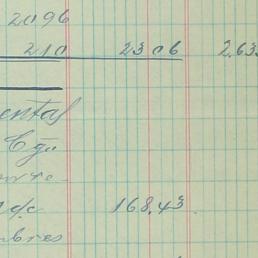 2096
210 2306 2.63
ental
Cía
a/c 168.43
mbres